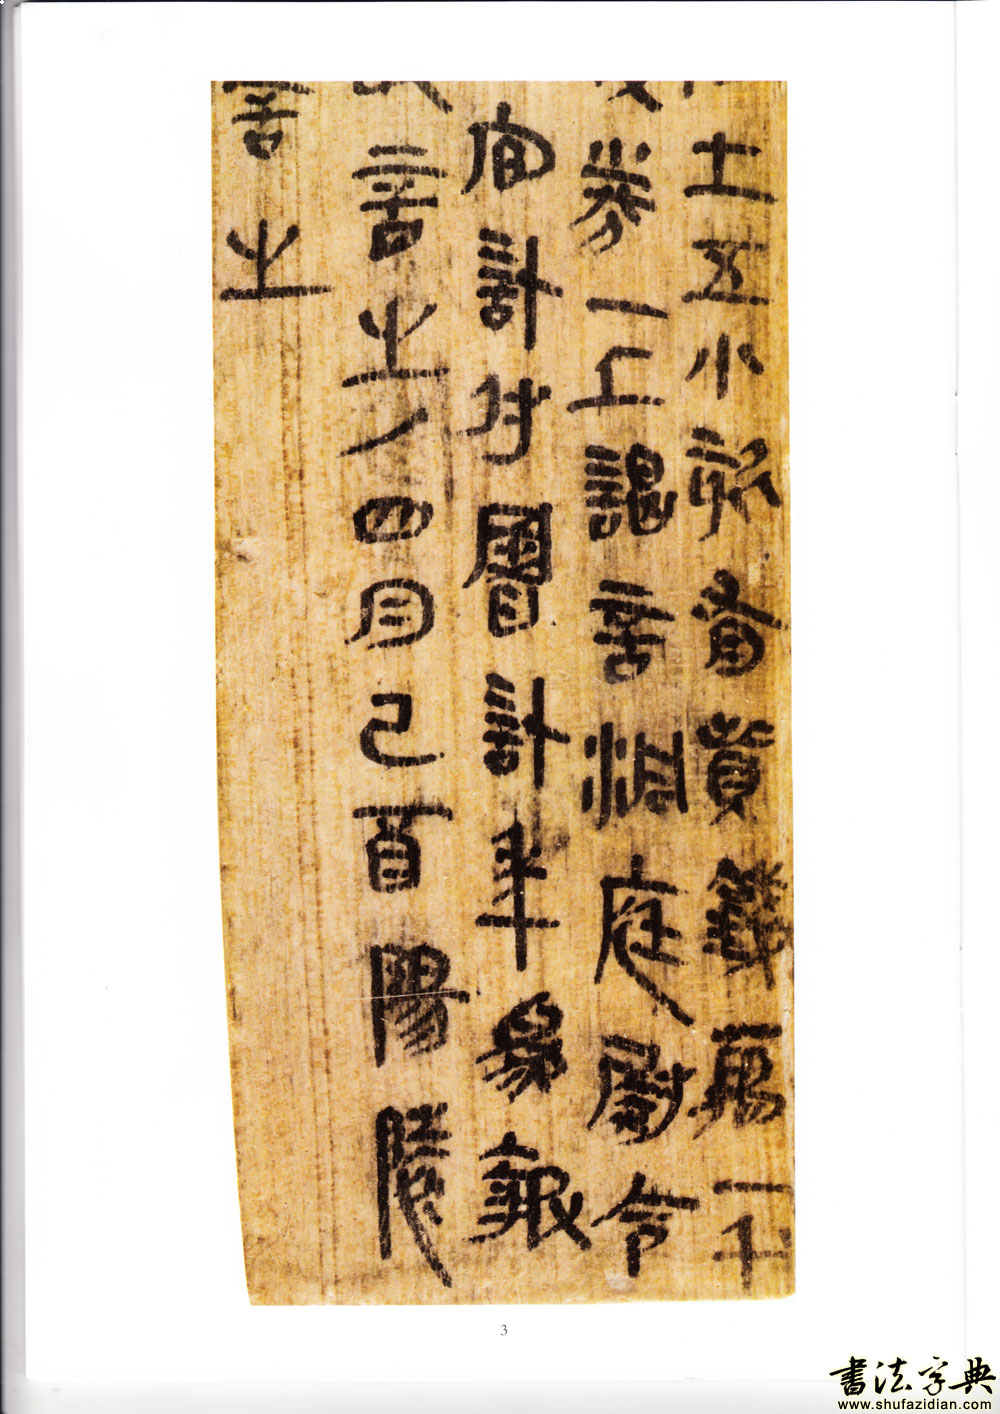 士五小欬有貲錢萬一千
券一上謁言洞庭尉令
何計付署計年為報
言之／四月己酉陽陵
言之
3
書法字典
www.shufazidian.com